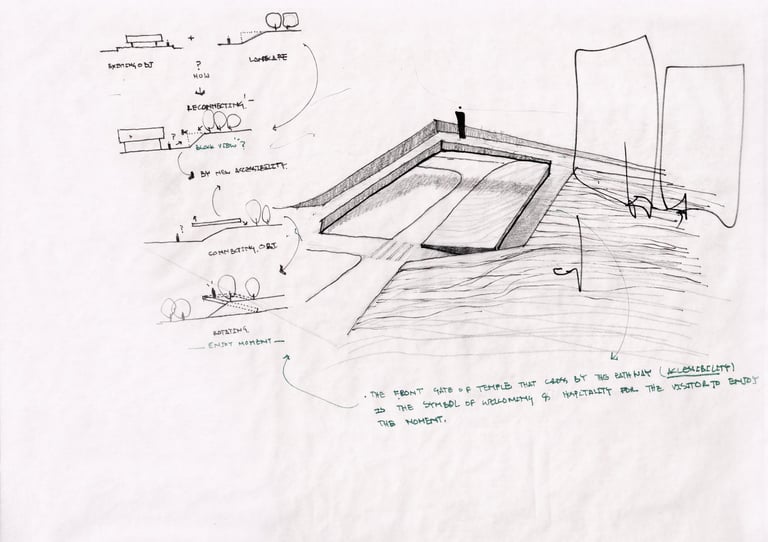 EXISTING OBJ + LANDSCAPE
?
HOW
RECONNECTING!
?
"BLOCK VIEW"?
BY NEW ACCESSIBILITY.
?
CONNECTING OBJ.
ROTATING
— ENJOY MOMENT —
. THE FRONT GATE OF TEMPLE THAT CROSS BY THE PATHWAY (ACCESIBILITY)
IS THE SYMBOL OF WELCOMING & HOSPITALITY FOR THE VISITOR TO ENJOY
THE MOMENT.